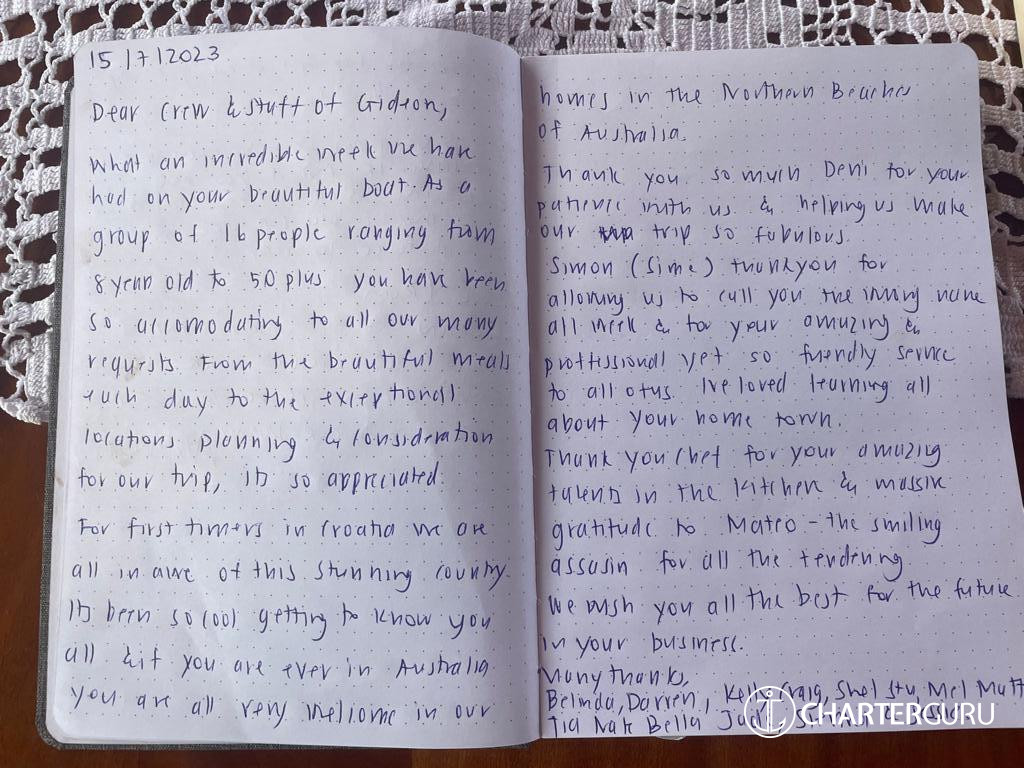 15/7/2023
Dear Crew & stuff of Gideon,
What an incredible week we have
had on your beautiful boat. As a
group of 16 people ranging from
8 year old to 50 plus you have been
so accomodating to all our many
requests. From the beautiful meals
each day to the exceptional
locations planning & consideration
for our trip, its so appreciated.
For first timers in Croatia we are
all in awe of this stunning country.
Its been so cool getting to know you
all & if you are ever in Australia
you are all very welcome in our
homes in the Northern Beaches
of Australia.
Thank you so much Deni for your
patience with us & helping us make
our trip so fabulous.
Simon (Sime) thankyou for
allowing us to call you the wrong name
all week & for your amazing &
proffessional yet so friendly service
to all of us. Ive loved learning all
about your home town.
Thank you Chef for your amazing
talents in the kitchen & massive
gratitude to Mateo - the smiling
assasin for all the tendering.
We wish you all the best for the future
in your business.
Many thanks,
Belinda, Darren, Kelly Craig, Shel Stu, Mel Matt
Tia Nate Bella
CHARTERGURU